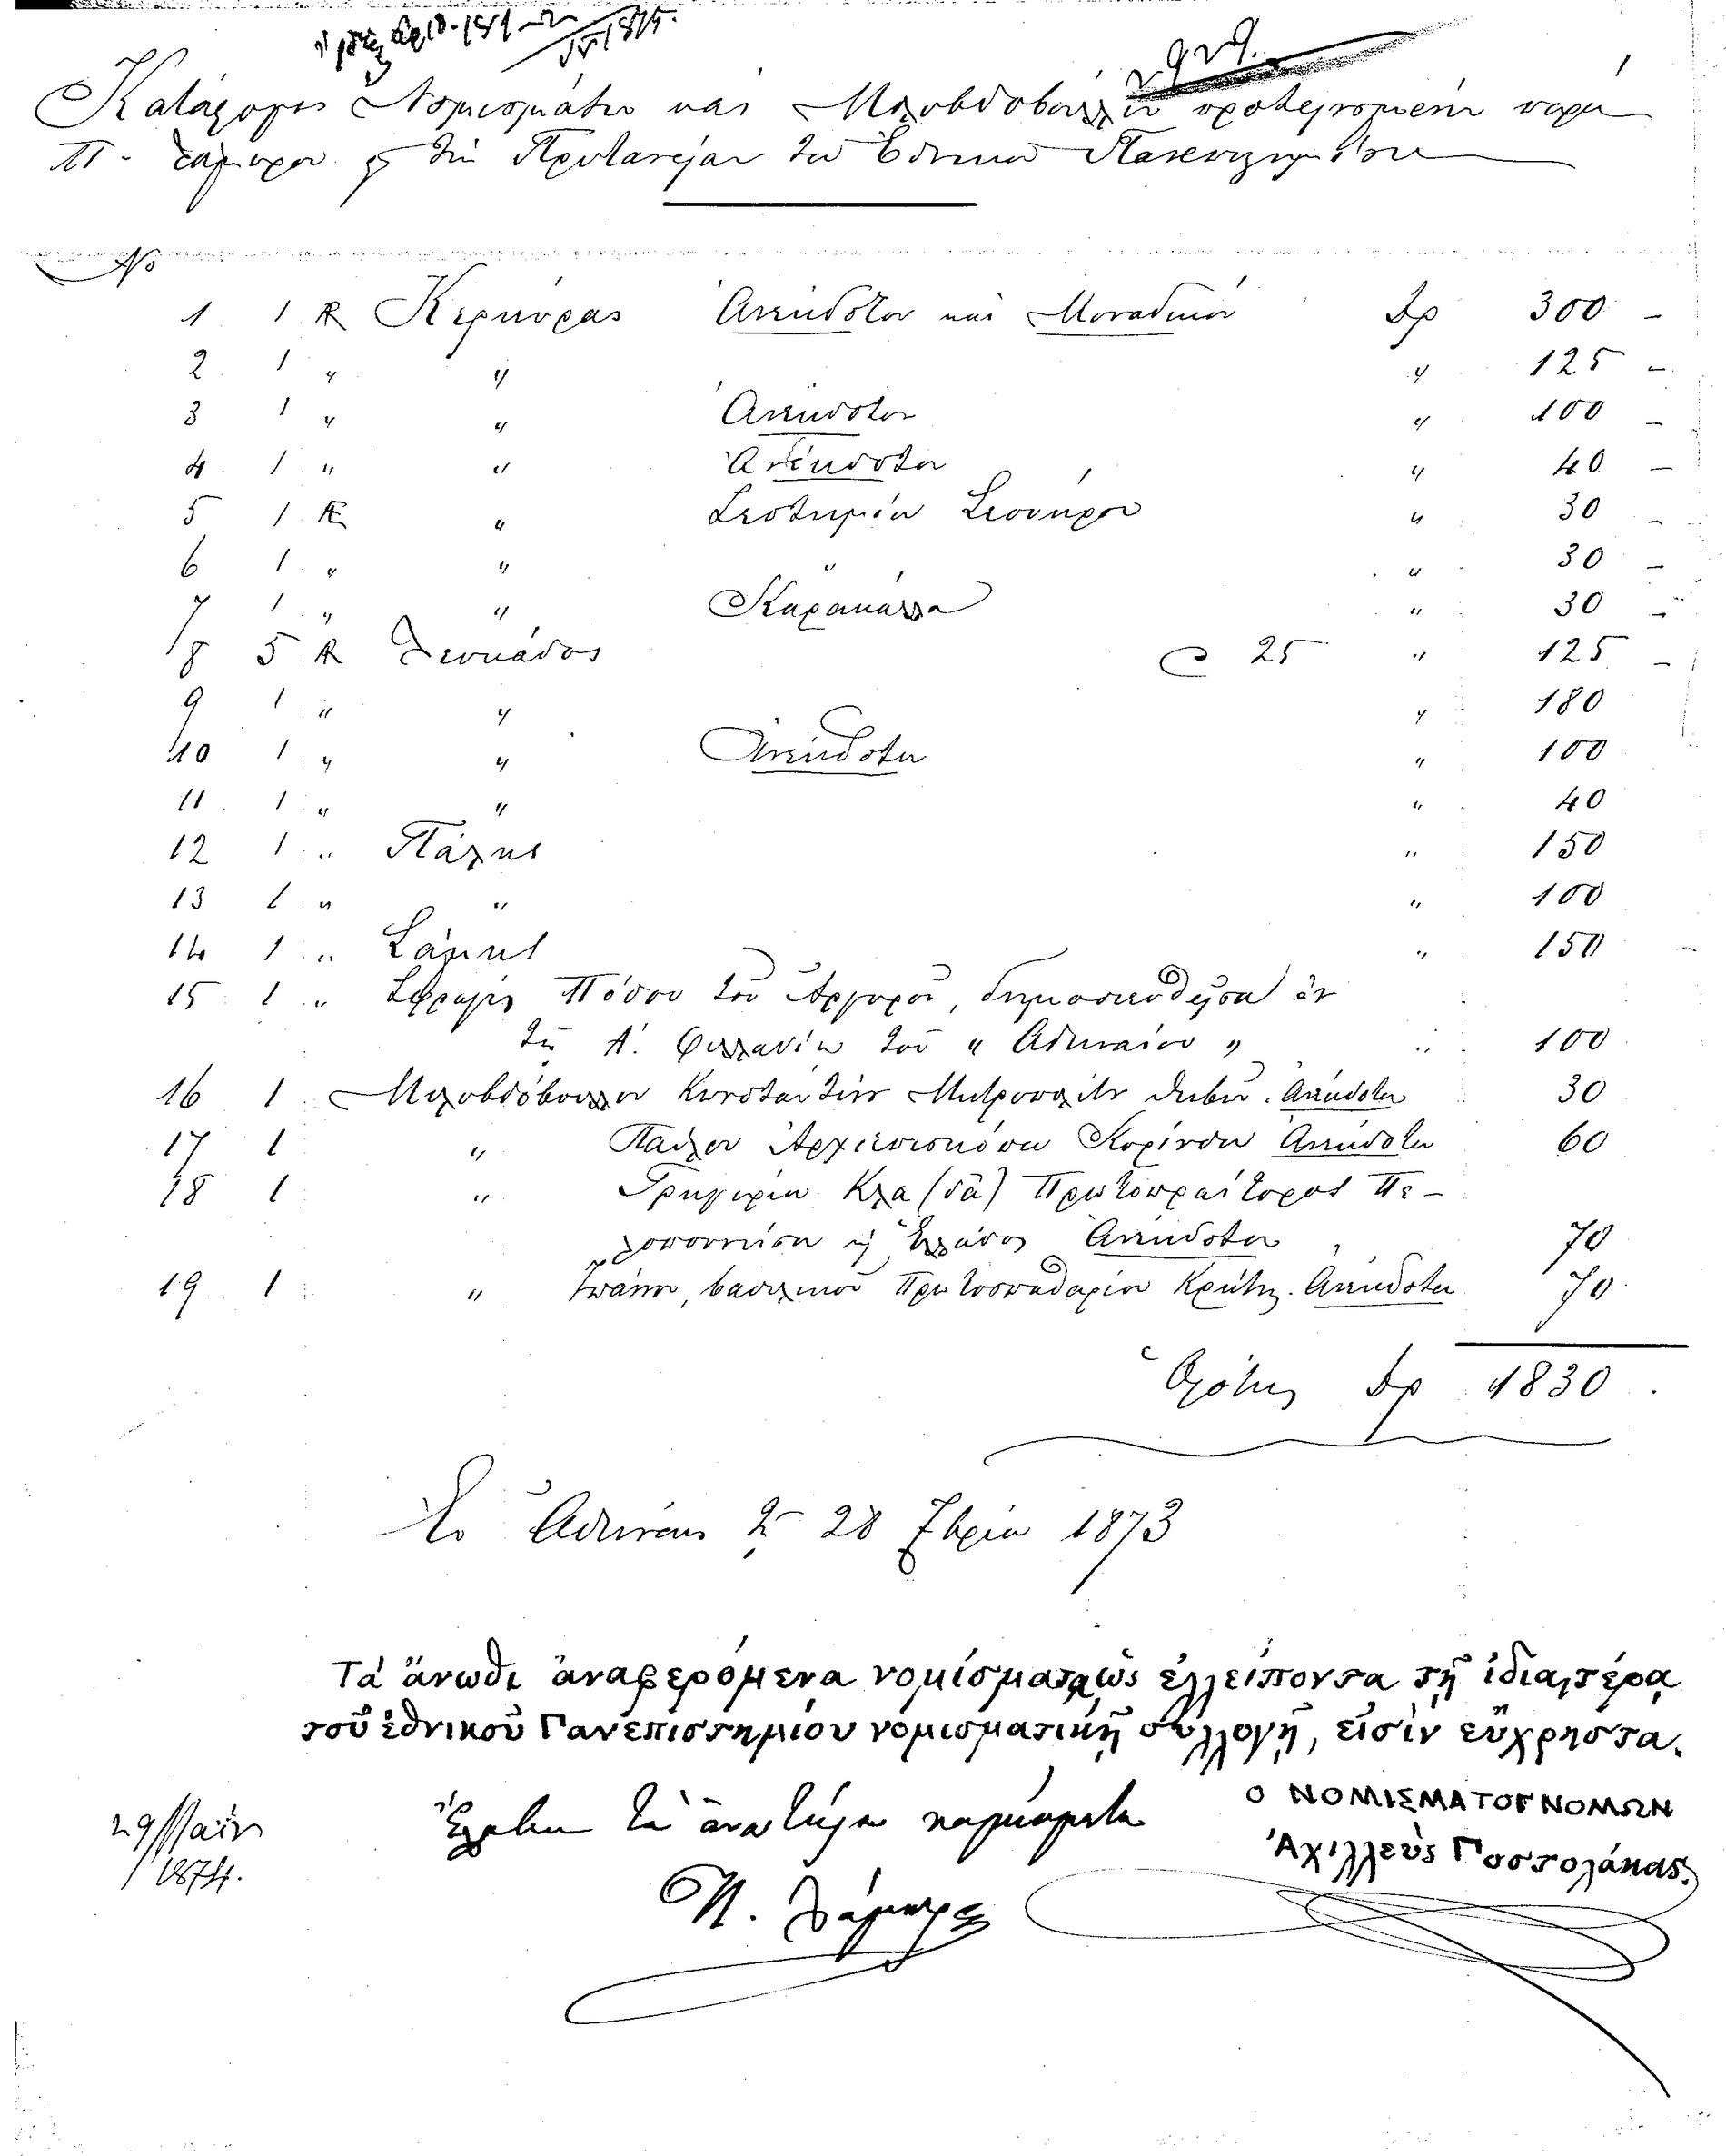 2929.
Κατάλογος Νομισμάτων καὶ Μολυβδοβούλλων προτεινομένων παρὰ
Π. Λάμπρου εἰς τὴν Πρυτανείαν τοῦ Ἐθνικοῦ Πανεπιστημίου
Νο
1 1 ÆR Κερκύρας Ἀνέκδοτον καὶ Μοναδικόν Δρ 300 –
2 1 〃 〃 〃 125 –
3 1 〃 〃 Ἀνέκδοτον 〃 100 –
4 1 〃 〃 Ἀνέκδοτον 〃 40 –
5 1 Æ 〃 Σεπτιμίου Σεουήρου 〃 30 –
6 1 〃 〃 〃 〃 30 –
7 1 〃 〃 Καρακάλλα 〃 30 –
8 5 ÆR Λευκάδος 25 〃 125 –
9 1 〃 〃 〃 180
10 1 〃 〃 Ἀνέκδοτον 〃 100
11 1 〃 〃 〃 40
12 1 〃 Πάλης 〃 150
13 1 〃 〃 〃 100
14 1 〃 Σάμης 〃 150
15 1 〃 Σφραγὶς Πόθου τοῦ Ἀργυροῦ, δημοσιευθεῖσα ἐν
τῷ Α'. φυλλαδίῳ τοῦ „ Ἀθηναίου „ 〃 100
16 1 Μολυβδόβουλλον Κωνσταντίνου Μητροπολίτου Θηβῶν. Ἀνέκδοτον 30
17 1 〃 Παύλου Ἀρχιεπισκόπου Κορίνθου Ἀνέκδοτον 60
18 1 〃 Γρηγορίου Κλα(δᾶ) Πρωτοπραίτορος Πε–
λοποννήσου κ Ἑλλάδος Ἀνέκδοτον 70
19 1 〃 Ἰωάννου, βασιλικοῦ Πρωτοσπαθαρίου Κρήτης. Ἀνέκδοτον 70
Ὁλότης Δρ 1830.
Ἐν Ἀθήναις τῇ 28 7βρίου 1873
Τὰ ἄνωθι ἀναφερόμενα νομίσματα, ὡς ἐλλείποντα τῇ ἰδιαιτέρᾳ
τοῦ ἐθνικοῦ Πανεπιστημίου νομισματικῇ συλλογῇ, εἰσὶν εὔχρηστα.
Ἔλαβον τὰ ἀνωτέρω νομίσματα
Ο ΝΟΜΙΣΜΑΤΟΓΝΟΜΩΝ
Ἀχιλλεὺς Ποστολάκας.
29 Μαΐου
1874.
Π. Λάμπρος